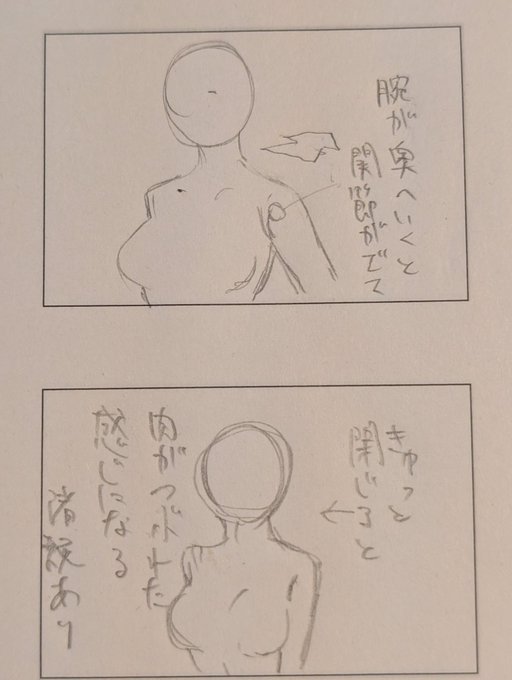 腕が奥へいくと
関節がでて
きゅっと
閉じると
肉がつぶれた
感じになる